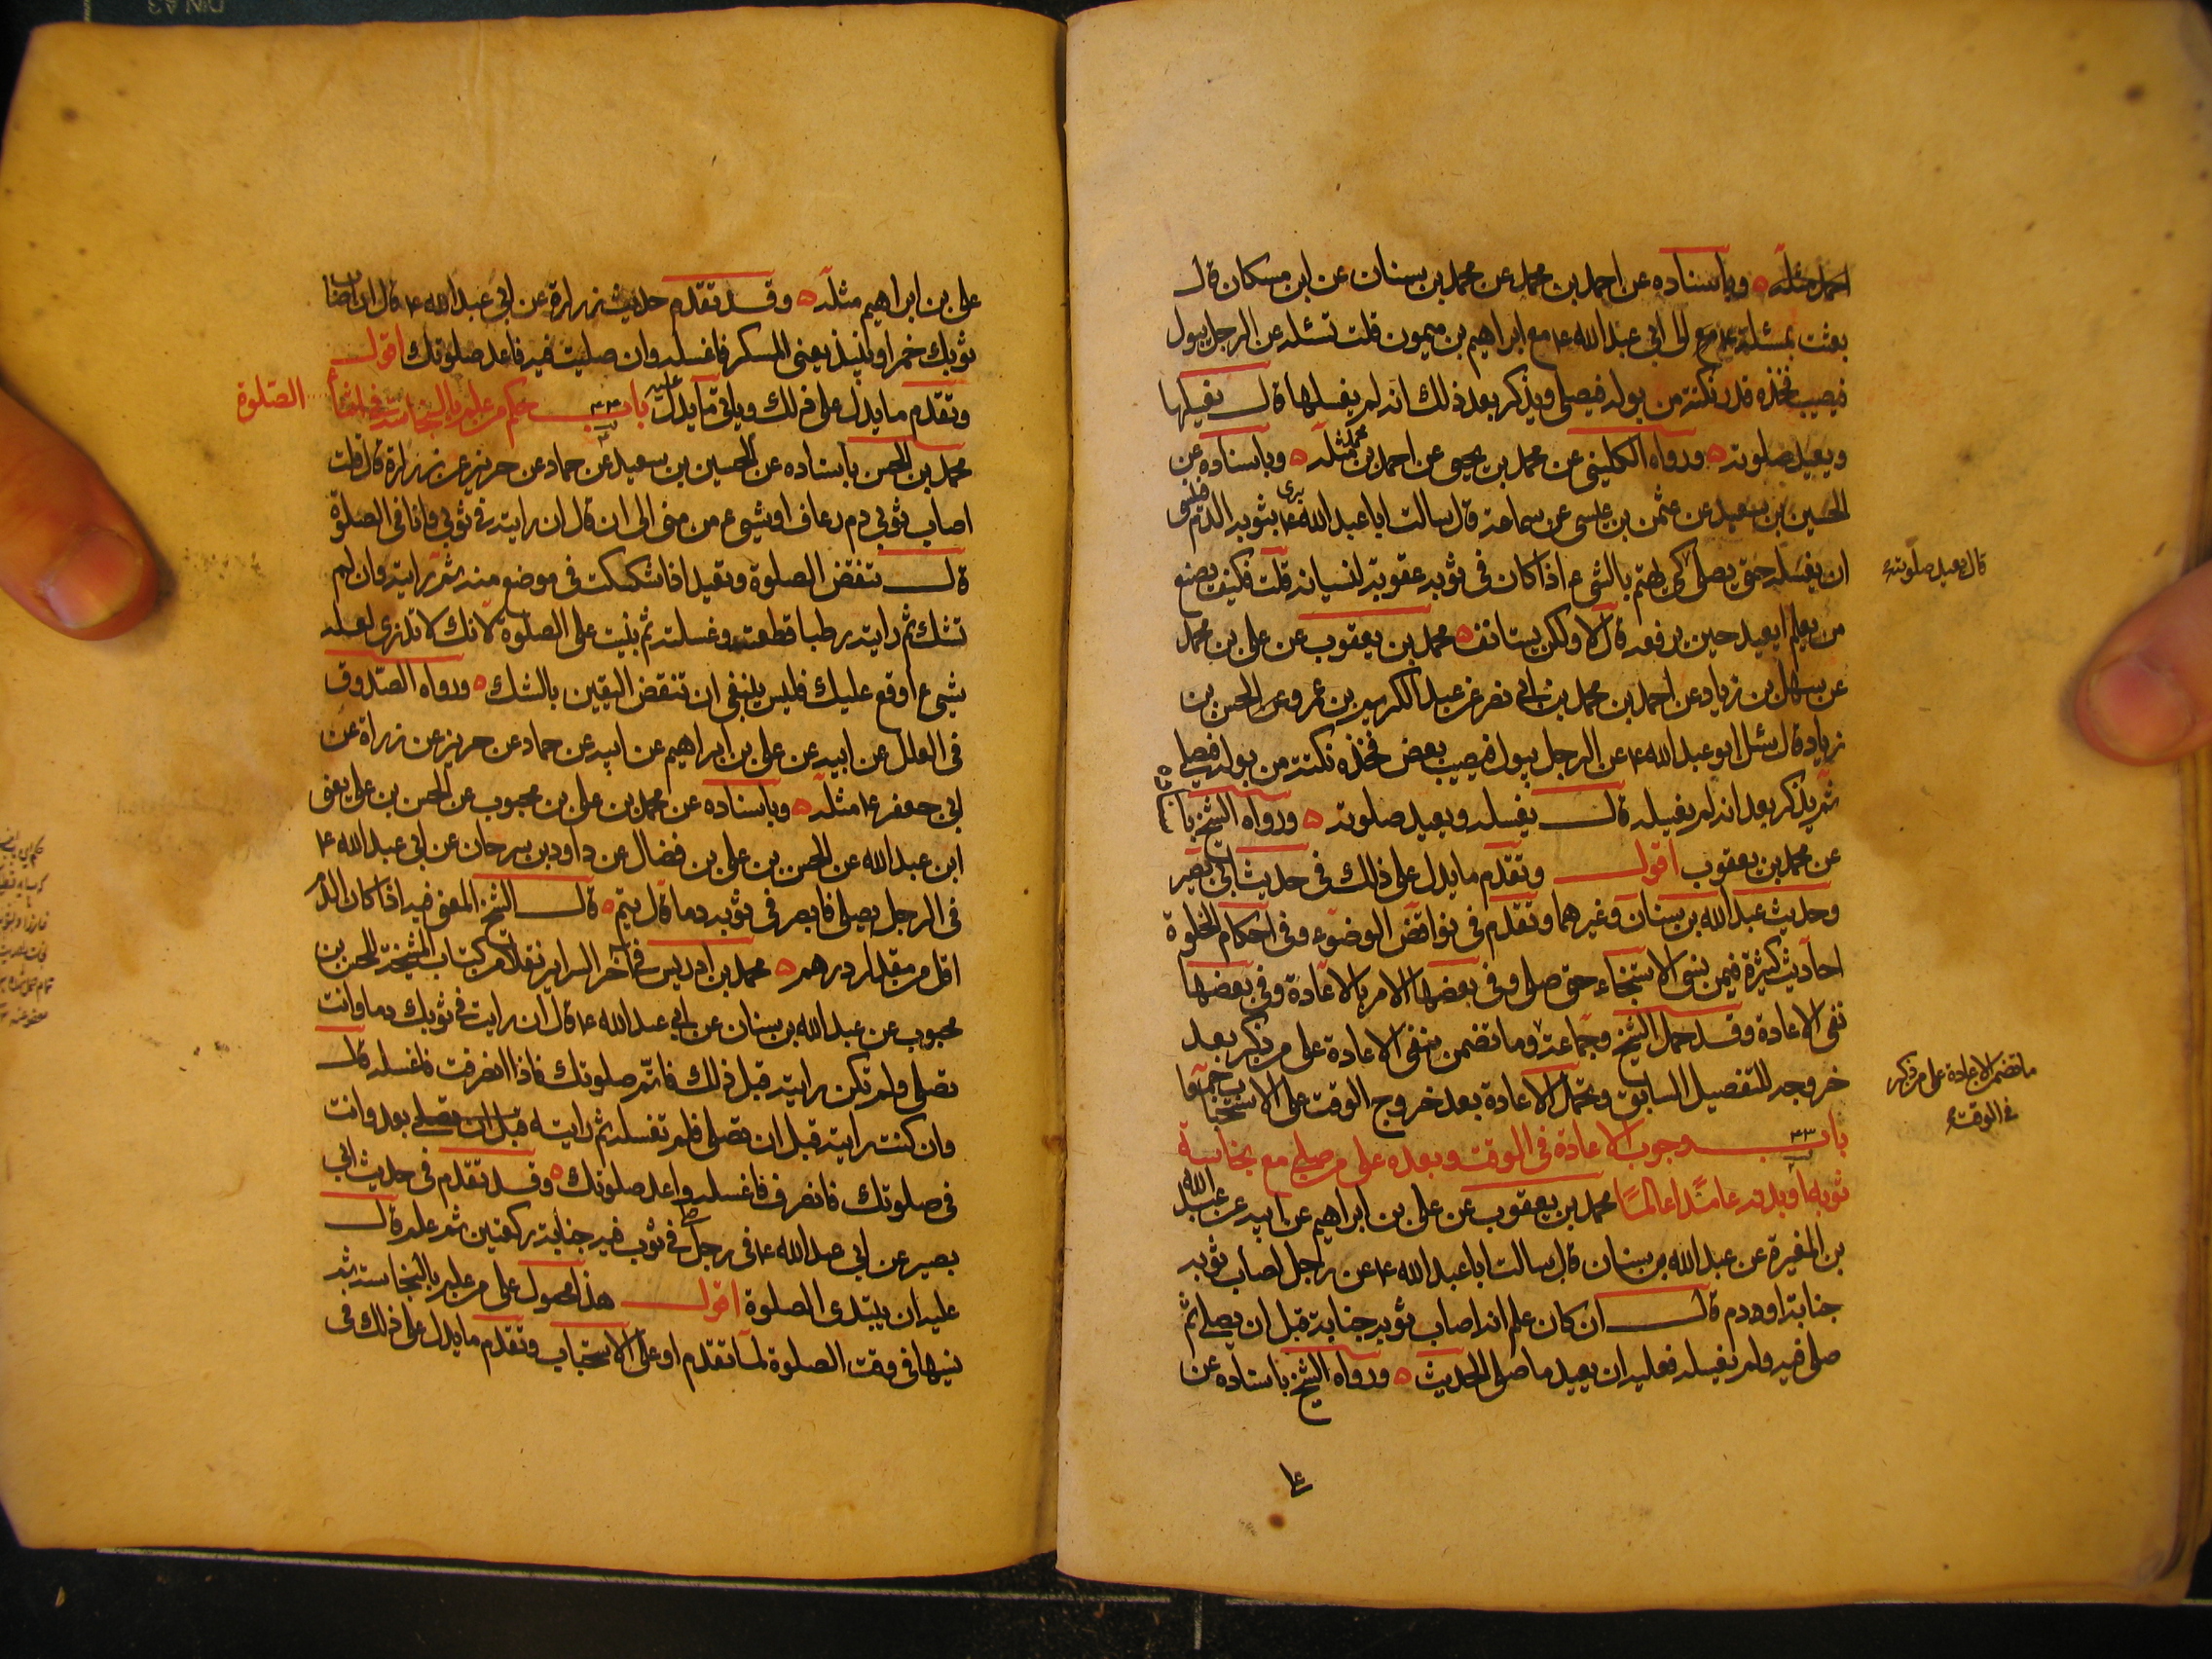 احمد مثله ه وباسناده عن احمد بن محمد عن محمد بن سنان عن ابن مسكان قال
بعثت بمسئلة الى ابى عبد الله ع مع ابراهيم بن ميمون قلت تسئله عن الرجل يبول
فيصيب فخذه قدر نكتة من بوله فيصلى ويذكر بعد ذلك انه لم يغسلها قال يغسلها
ويعيد صلوته ه ورواه الكلينى عن محمد بن يحيى عن احمد بن محمد مثله ه وباسناده عن
الحسين بن سعيد عن عثمن بن عيسى عن سماعة قال سالت ابا عبد الله ع يرى بثوبه الدم فينسى
ان يغسله حتى يصلى قال يعيد صلوته كى يهتم بالشىء اذا كان فى ثوبه عقوبة لنسيانه قلت فكيف يصنع
من لم يعلم ايعيد حين يرفعه قال لا ولكن يستانف ه محمد بن يعقوب عن على بن محمد
عن سهل بن زياد عن احمد بن محمد بن ابى نصر عن عبد الكريم بن عمرو عن الحسن بن
زياد قال سئل ابو عبد الله ع عن الرجل يبول فيصيب بعض فخذه نكتة من بوله فيصلى
ثم يذكر بعد انه لم يغسله قال يغسله ويعيد صلوته ه ورواه الشيخ باسناده
عن محمد بن يعقوب اقول وتقدم ما يدل على ذلك فى حديث ابى بصير
وحديث عبد الله بن سنان وغيرهما وتقدم فى نواقض الوضوء وفى احكام الخلوة
احاديث كثيرة فيمن نسى الاستنجاء حتى صلى وفى بعضها الامر بالاعادة وفى بعضها
نفى الاعادة وقد حمل الشيخ وجماعة ما تضمن الاعادة على من ذكر فى الوقت وما تضمن نفى الاعادة على من ذكر بعد
خروجه للتفصيل السابق ويحتمل الاعادة بعد خروج الوقت على الاستحباب جمعا
باب ٤٣ وجوب الاعادة فى الوقت وبعده على من صلى مع نجاسة
ثوبه او بدنه عامدا عالما محمد بن يعقوب عن على بن ابراهيم عن ابيه عن عبد الله
بن المغيرة عن عبد الله بن سنان قال سالت ابا عبد الله ع عن رجل اصاب ثوبه
جنابة او دم قال ان كان علم انه اصاب ثوبه جنابة قبل ان يصلى ثم
صلى فيه ولم يغسله فعليه ان يعيد ما صلى الحديث ه ورواه الشيخ باسناده عن
على بن ابراهيم مثله ه وقد تقدم حديث زرارة عن ابى عبد الله ع قال ان اصاب
ثوبك خمر او نبيذ يعنى المسكر فاغسله وان صليت فيه فاعد صلوتك اقول
وتقدم ما يدل على ذلك وياتى ما يدل عليه باب ٤٤ حكم من علم بالنجاسة فى اثناء الصلوة
محمد بن الحسن باسناده عن الحسين بن سعيد عن حماد عن حريز عن زرارة قال قلت
اصاب ثوبى دم رعاف او شىء من منى الى ان قال ان رايته فى ثوبى وانا فى الصلوة
قال تنقض الصلوة وتعيد اذا شككت فى موضع منه ثم رايته وان لم
تشك ثم رايته رطبا قطعت وغسلته ثم بنيت على الصلوة لانك لا تدرى لعله
شىء اوقع عليك فليس ينبغى ان تنقض اليقين بالشك ه ورواه الصدوق
فى العلل عن ابيه عن على بن ابراهيم عن ابيه عن حماد عن حريز عن زرارة عن
ابى جعفر ع مثله ه وباسناده عن محمد بن على بن محبوب عن الحسن بن على يعنى
ابن عبد الله عن الحسن بن على بن فضال عن داود بن سرحان عن ابى عبد الله ع
فى الرجل يصلى فابصر فى ثوبه دما قال يتم ه قال الشيخ المعنى فيه اذا كان الدم
اقل من مقدار درهم ه محمد بن ادريس فى آخر السراير نقلا من كتاب المشيخة للحسن بن
محبوب عن عبد الله بن سنان عن ابى عبد الله ع قال ان رايت فى ثوبك دما وانت
تصلى ولم تكن رايته قبل ذلك فاتم صلوتك فاذا انصرفت فاغسله قال
وان كنت رايته قبل ان تصلى فلم تغسله ثم رايته بعد وانت
فى صلوتك فانصرف فاغسله واعد صلوتك ه وقد تقدم فى حديث ابى
بصير عن ابى عبد الله ع فى رجل صلى فى ثوب فيه جنابة ركعتين ثم علم قال
عليه ان يبتدى الصلوة اقول هذا محمول على من علم بالنجاسة ثم
نسيها فى وقت الصلوة لما تقدم او على الاستحباب وتقدم ما يدل على ذلك فى